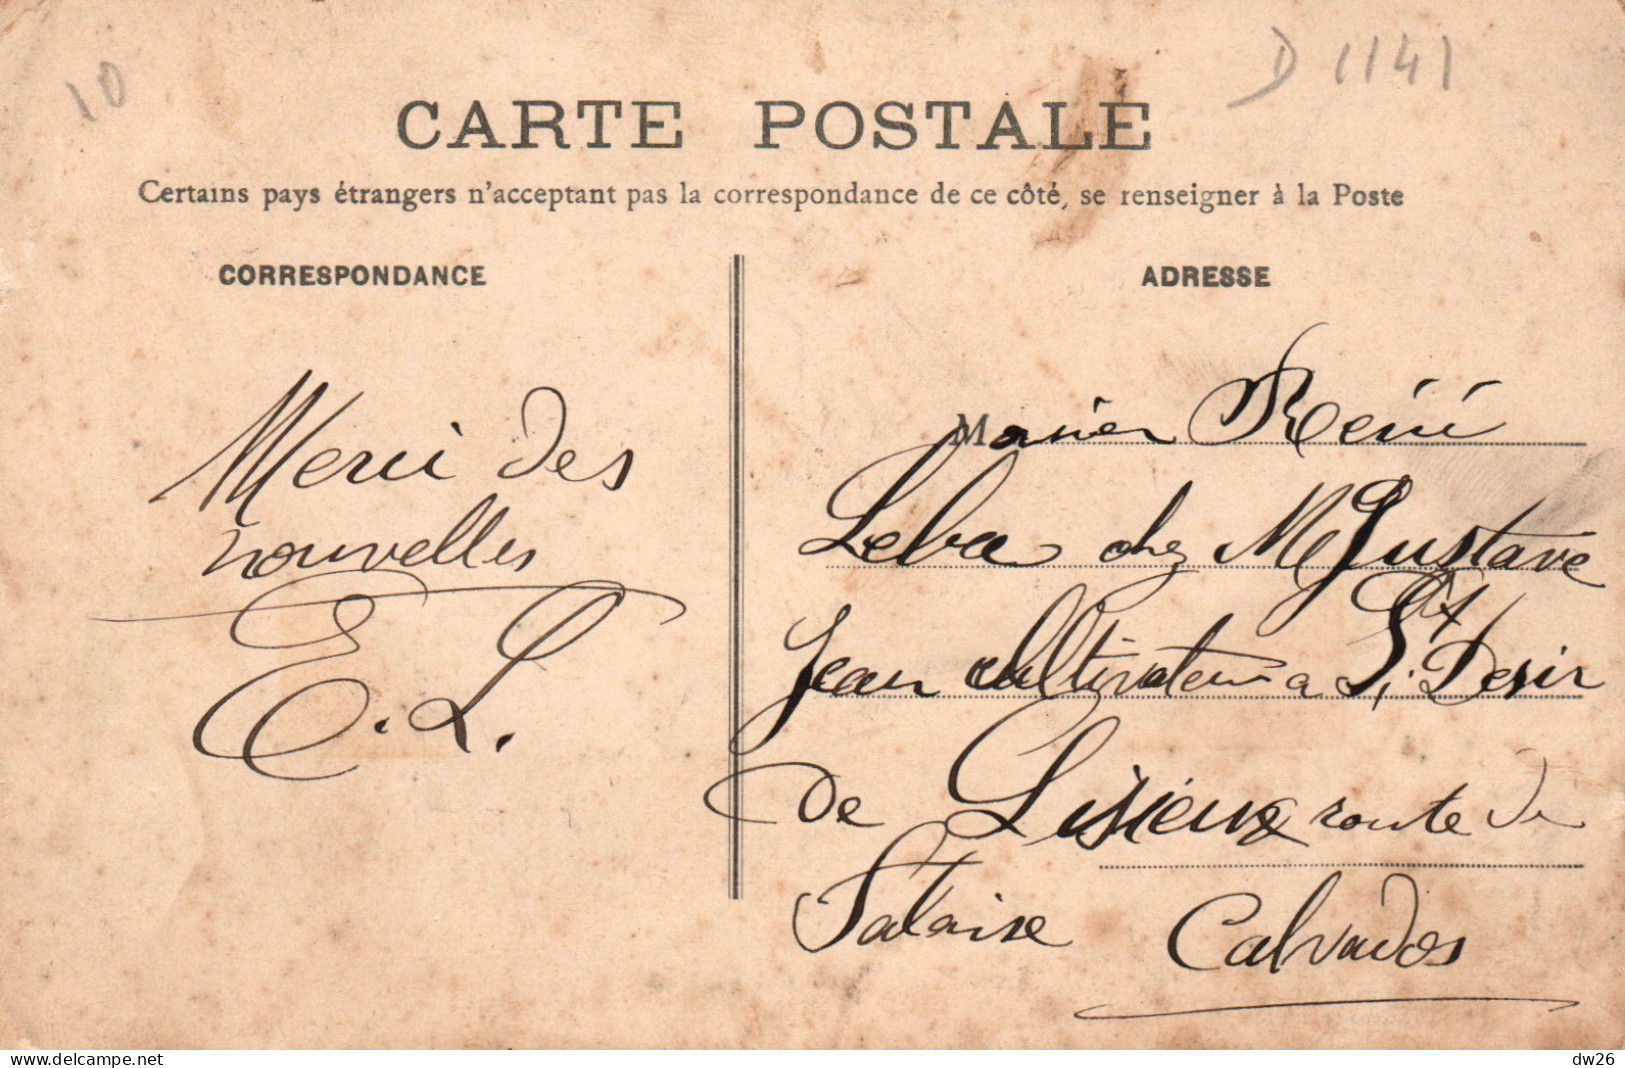 10
D 1141
CARTE POSTALE
Certains pays étrangers n'acceptant pas la correspondance de ce côté, se renseigner à la Poste
CORRESPONDANCE
Merci des
nouvelles
E. L.
ADRESSE
René
chez Mr Gustave
Jean cultivateur a St Desir
de Lisieux route de
Falaise Calvados
www.delcampe.net
dw26